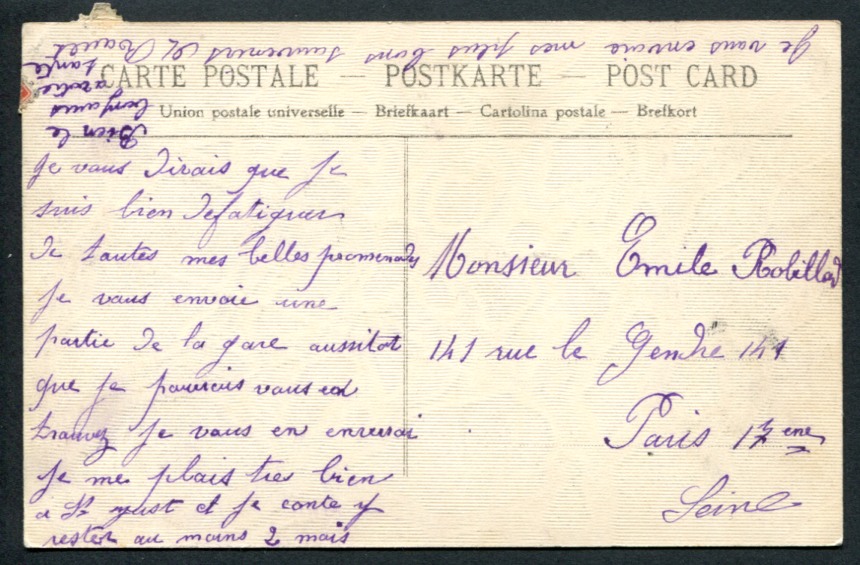 Je vous envoie mes plus bons souvenirs
CARTE POSTALE — POSTKARTE — POST CARD
Union postale universelle — Briefkaart — Cartolina postale — Brefkort
Je vous dirais que je
suis bien defatiguer
de toutes mes belles promenades
Je vous envoie une
partie de la gare aussitot
que je pourrais vous en
trouvez je vous en enverrai
Je me plais tres bien
a St just et je conte y
rester au moins 2 mais
Bien le
bonjours
a
tante
Monsieur Emile Robillad
141 rue le Gendre 141
Paris 17 eme
Seine